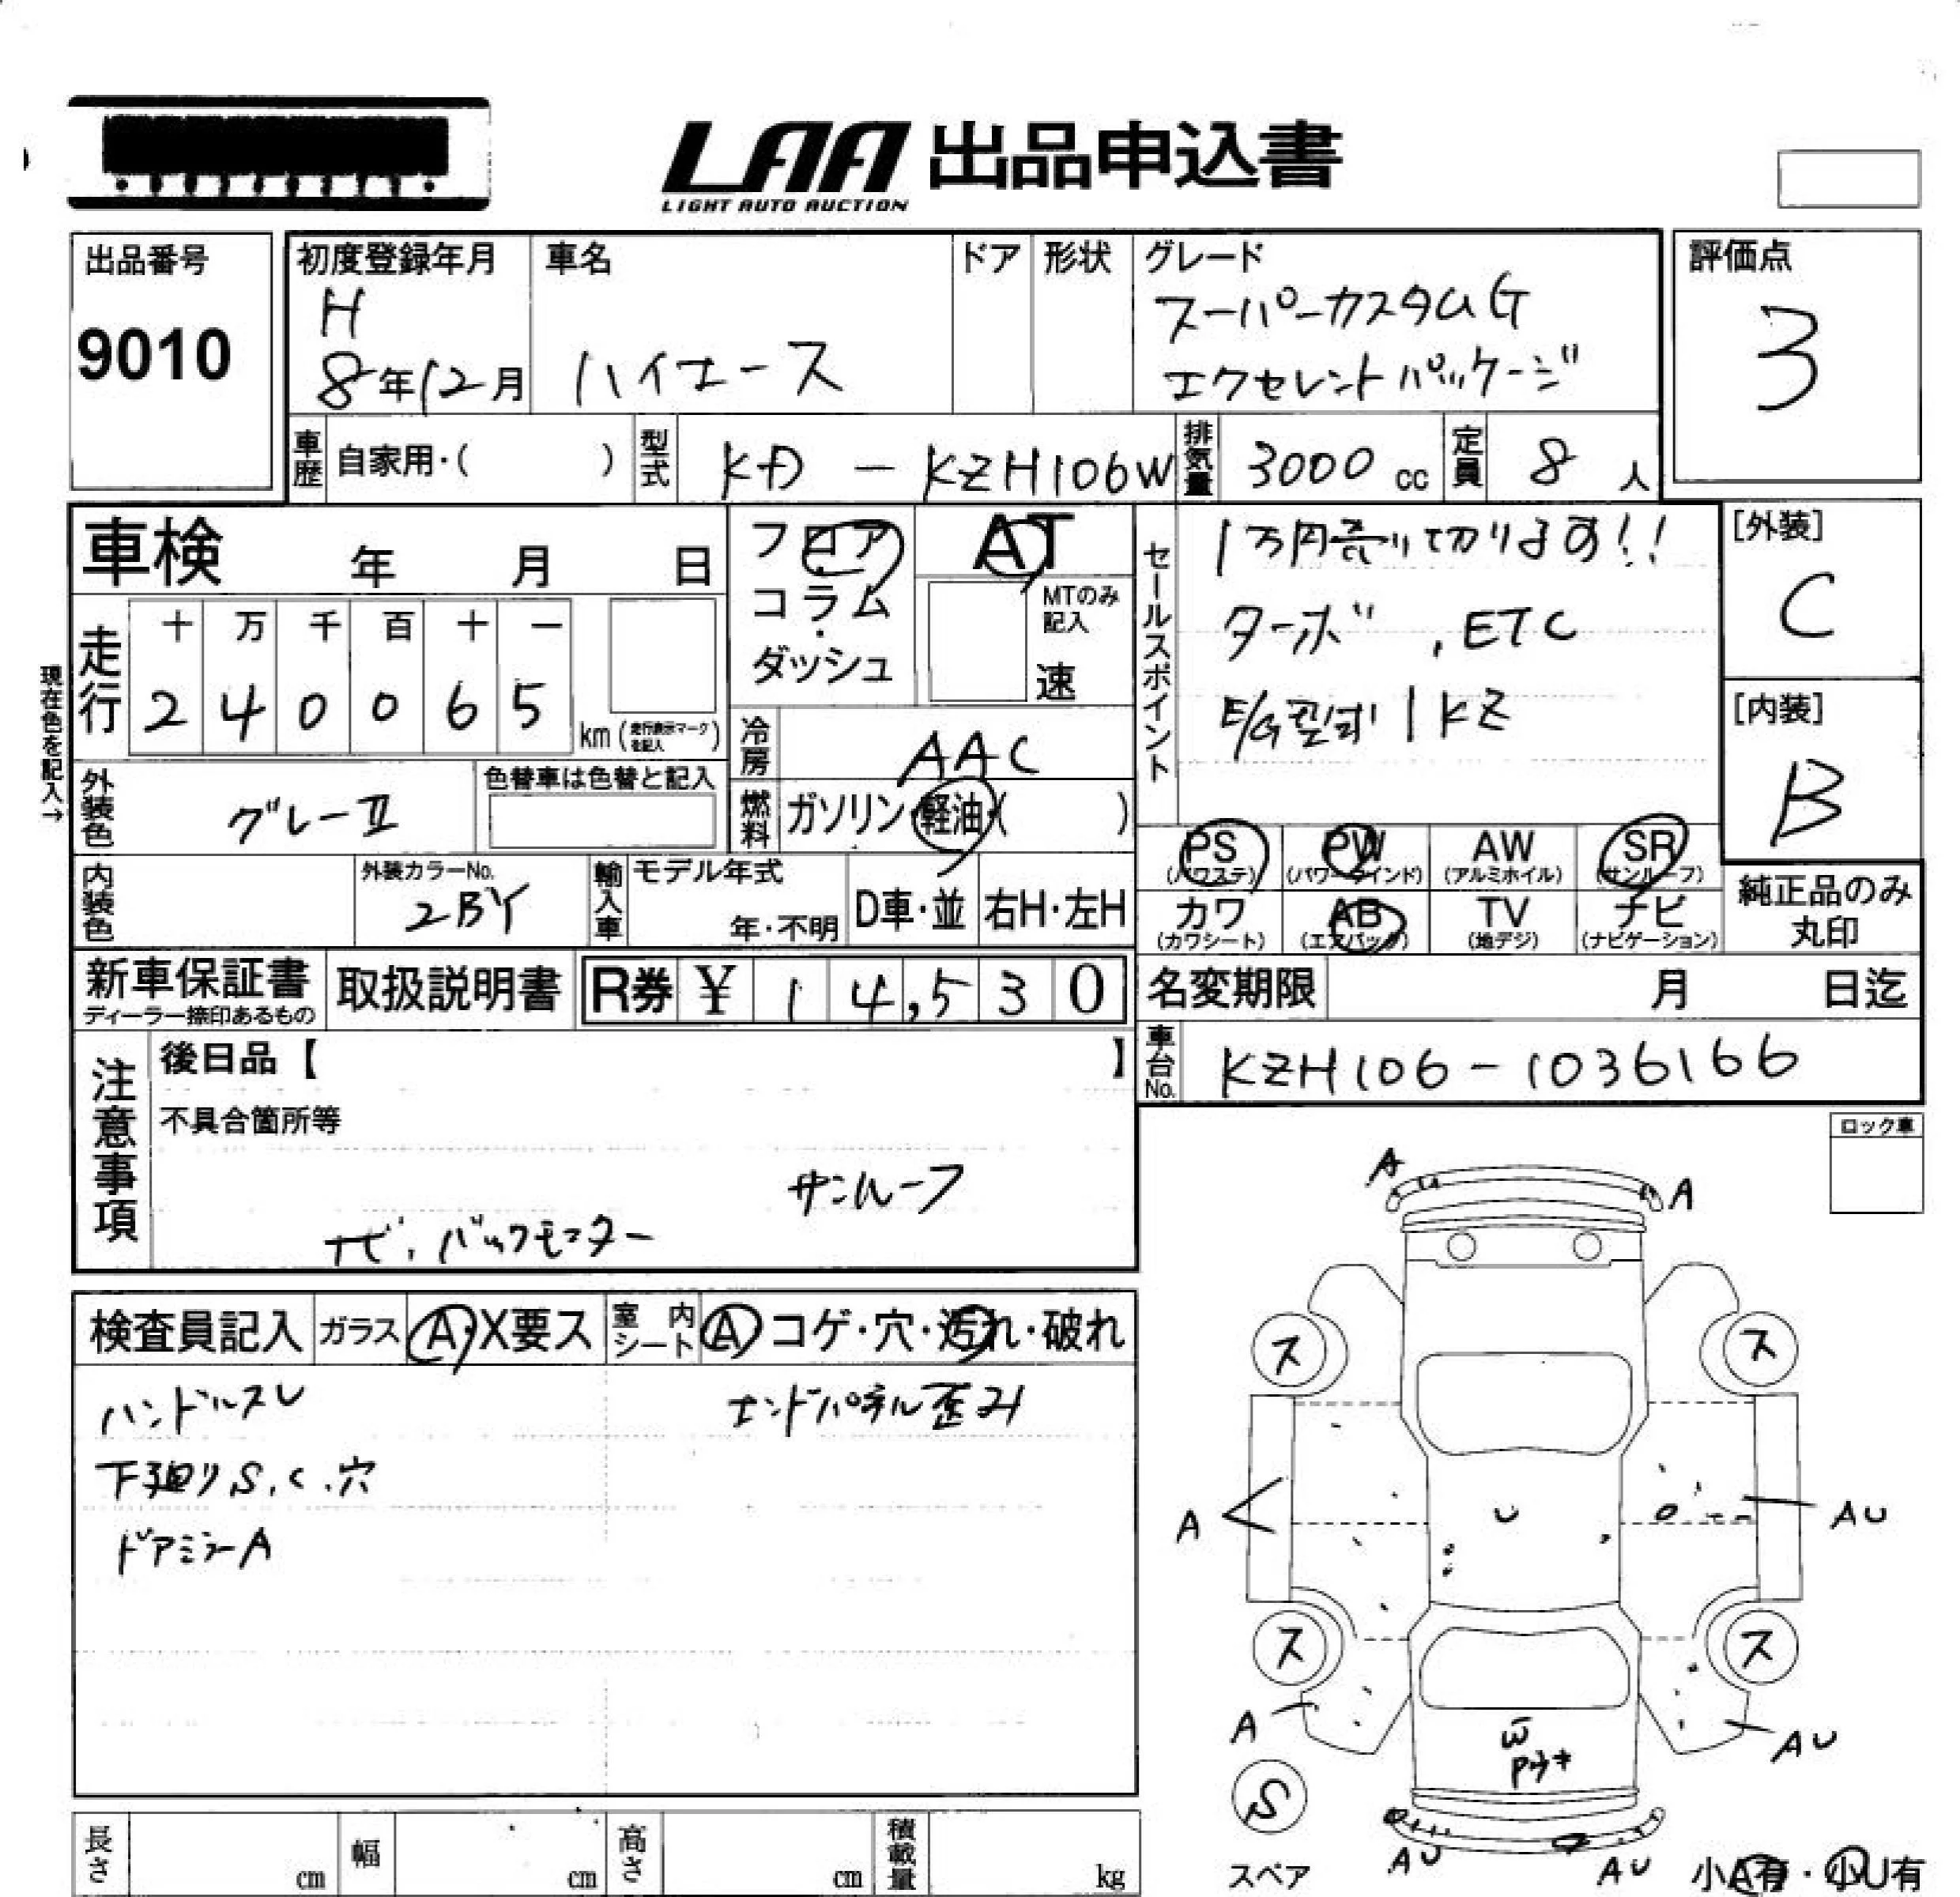 LAA 出品申込書
LIGHT AUTO AUCTION
出品番号
9010
初度登録年月
H
8年12月
車名
ハイエース
ドア
形状
グレード
スーパーカスタムG
エクセレントパッケージ
評価点
3
車歴 自家用・( )
型式 KD - KZH106W
排気量 3000 cc
定員 8 人
車検 年 月 日
フロア
コラム
・
ダッシュ
AT
MTのみ
記入
速
セールスポイント
1万円売り切ります!!
ターボ , ETC
E/G型式 1KZ
[外装]
C
[内装]
B
現在色を記入→
走行
十 万 千 百 十 一
2 4 0 0 6 5
km (走行表示マークを記入)
冷房 AAC
燃料 ガソリン・軽油・( )
外装色 グレーII
色替車は色替と記入
内装色
外装カラーNo.
2BY
輸入車
モデル年式
年・不明
D車・並
右H・左H
PS
(パワステ)
PW
(パワーウインド)
AW
(アルミホイル)
SR
(サンルーフ)
カワ
(カワシート)
AB
(エアバッグ)
TV
(地デジ)
ナビ
(ナビゲーション)
純正品のみ
丸印
新車保証書
ディーラー捺印あるもの
取扱説明書
R券 ¥ 1 4,5 3 0
名変期限 月 日迄
車台No. KZH106-1036166
注意事項
後日品【 】
不具合箇所等
サンルーフ
ナビ, バックモニター
ロック車
検査員記入
ガラス A・X要ス
室内シート A コゲ・穴・汚れ・破れ
ハンドルスレ
エンドパネル歪み
下廻りS.C.穴
ドアミラーA
A
A
ス
ス
A
U
AU
ス
ス
A
W
AU
S
スペア
AU
AU
小A有・小U有
長さ cm
幅 cm
高さ cm
積載量 kg